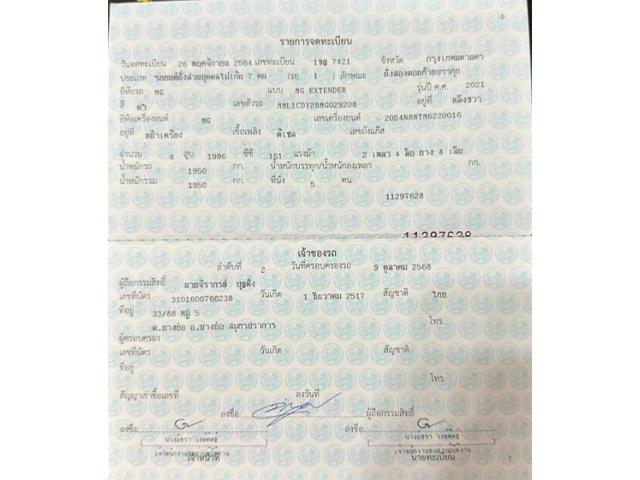 6
รายการจดทะเบียน
วันจดทะเบียน 26 พฤศจิกายน 2564 เลขทะเบียน 1ขฎ 7421 จังหวัด กรุงเทพมหานคร
ประเภท รถยนต์นั่งส่วนบุคคลไม่เกิน 7 คน (รย. 1 ) ลักษณะ นั่งสองตอนท้ายบรรทุก
ยี่ห้อรถ MG แบบ MG EXTENDER รุ่นปี ค.ศ. 2021
สี ดำ เลขตัวรถ MMLICDY28MG029208 อยู่ที่ หลังขวา
ยี่ห้อเครื่องยนต์ MG เลขเครื่องยนต์ 20D4N8NTM6220016
อยู่ที่ หน้าเครื่อง เชื้อเพลิง ดีเซล เลขถังแก๊ส
จำนวน 4 สูบ 1996 ซีซี 161 แรงม้า 2 เพลา 4 ล้อ ยาง 4 เส้น
น้ำหนักรถ 1950 กก. น้ำหนักบรรทุก/น้ำหนักลงเพลา กก.
น้ำหนักรวม 1950 กก. ที่นั่ง 5 คน
11297628
11297628
เจ้าของรถ
ลำดับที่ 2 วันที่ครอบครองรถ 9 ตุลาคม 2568
ผู้ถือกรรมสิทธิ์ นายจิรากรธ์
เลขที่บัตร 3101600766238 วันเกิด 1 ธันวาคม 2517 สัญชาติ ไทย
ที่อยู่ 33/88 หมู่ 5 โทร.
ต.บางบ่อ อ.บางบ่อ สมุทรปราการ
ผู้ครอบครอง
เลขที่บัตร วันเกิด สัญชาติ
ที่อยู่ โทร.
สัญญาเช่าซื้อเลขที่ ลงวันที่
ลงชื่อ ผู้ถือกรรมสิทธิ์
ลงชื่อ ลงชื่อ
เจ้าหน้าที่ นายทะเบียน